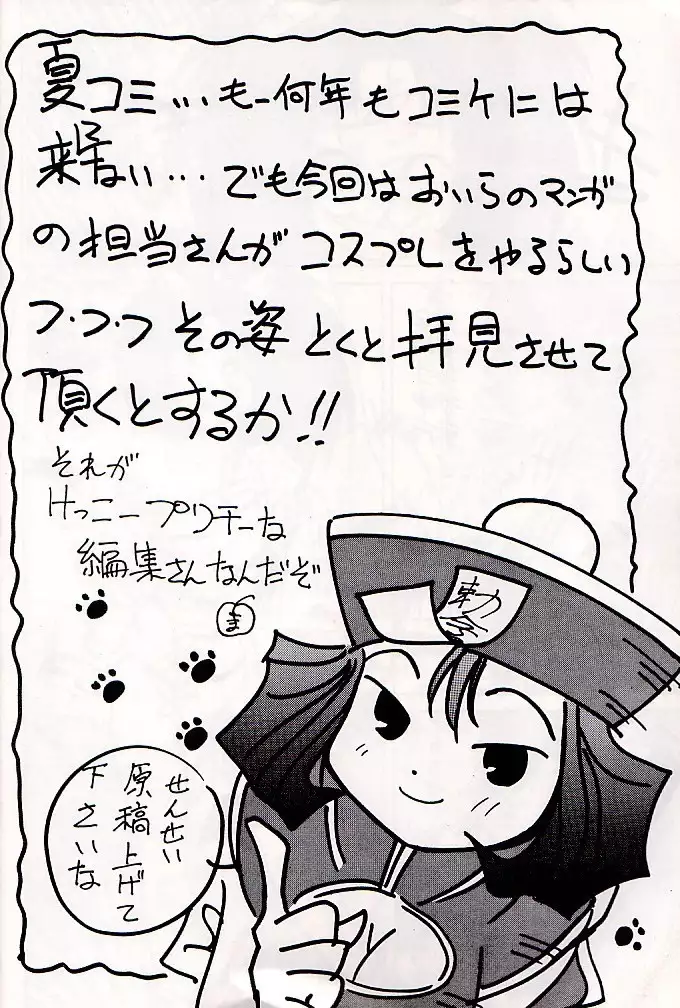 夏コミ…もー何年もコミケには
来てない…でも今回はおいらのマンガ
の担当さんがコスプレをやるらしい
フ・フ・フ その姿とくと拝見させて
頂くとするか!!
それが
けっこープリチーな
編集さんなんだぞ
ま
勅令
せんせい
原稿上げて
下さいな